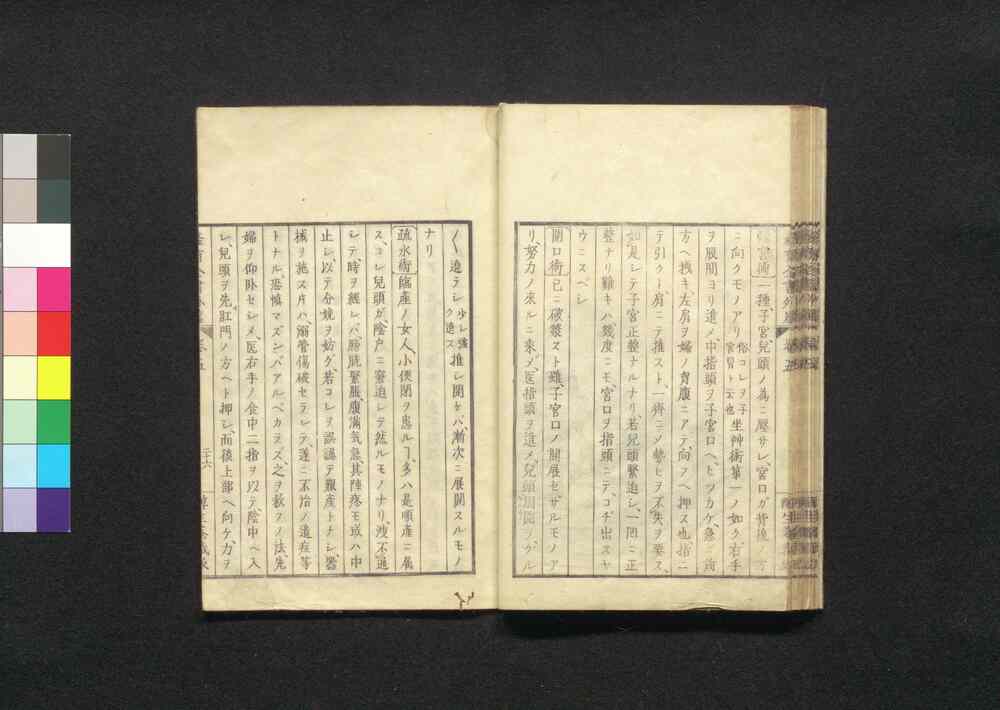 宮術一種子宮兒頭ノ為ニ壓サレ、宮口ガ背後ノ方
ニ向クモノアリ俗コレヲ子宮背ト云也坐艸術第一ノ如ク、右手
ヲ股間ヨリ進メ、中指頭ヲ子宮口ヘヒツカケ、急ニ前
方ヘ拽キ、左肩ヲ婦ノ腹ニアテ、向フヘ押ス也指ニ
テ引クト、肩ニテ推スト、一齊ニシ勢ヒヲ不失ヲ要ス、
如是シテ子宮正整ナルナリ、若兒頭緊迫シ、一回ニ正
整ナリ難キハ幾度ニモ、宮口ヲ指頭ニテ、コヂ出スヤ
ウニスベシ
開口術已ニ破漿スト雖、子宮口ノ開展セザルモノア
リ、努力ノ来ルニ乗ジ、医指頭ヲ進メ、兒頭周圍ヲグル
〱進テシ少シ宛ク進ス推シ開ケバ、漸次ニ展開スルモノ
ナリ
疏水術臨產ノ女人、小便閉ヲ患ルヿ、多ハ是順產ニ属
ス、コレ兒頭ガ、陰戸ニ窘迫シテ然ルモノナリ、洩不通
シテ、時ヲ經レバ膀胱緊脹、腹滿気急其陣疼モ或ハ中
止シ、以テ分娩ヲ妨グ、若コレヲ誤認テ難產トナシ、器
械ヲ施ス片ハ、溺管傷破セラレテ、遂ニ不治ノ遺疾等
トナル、恐慎マズンバアルベカラズ、之ヲ救フノ法、先
婦ヲ仰卧セシメ、医右手ノ食中二指ヲ以テ陰中ヘ入
レ、兒頭ヲ先肛門ノ方ヘト押シ、而後上部ヘ向ケ、力ヲ
二十六